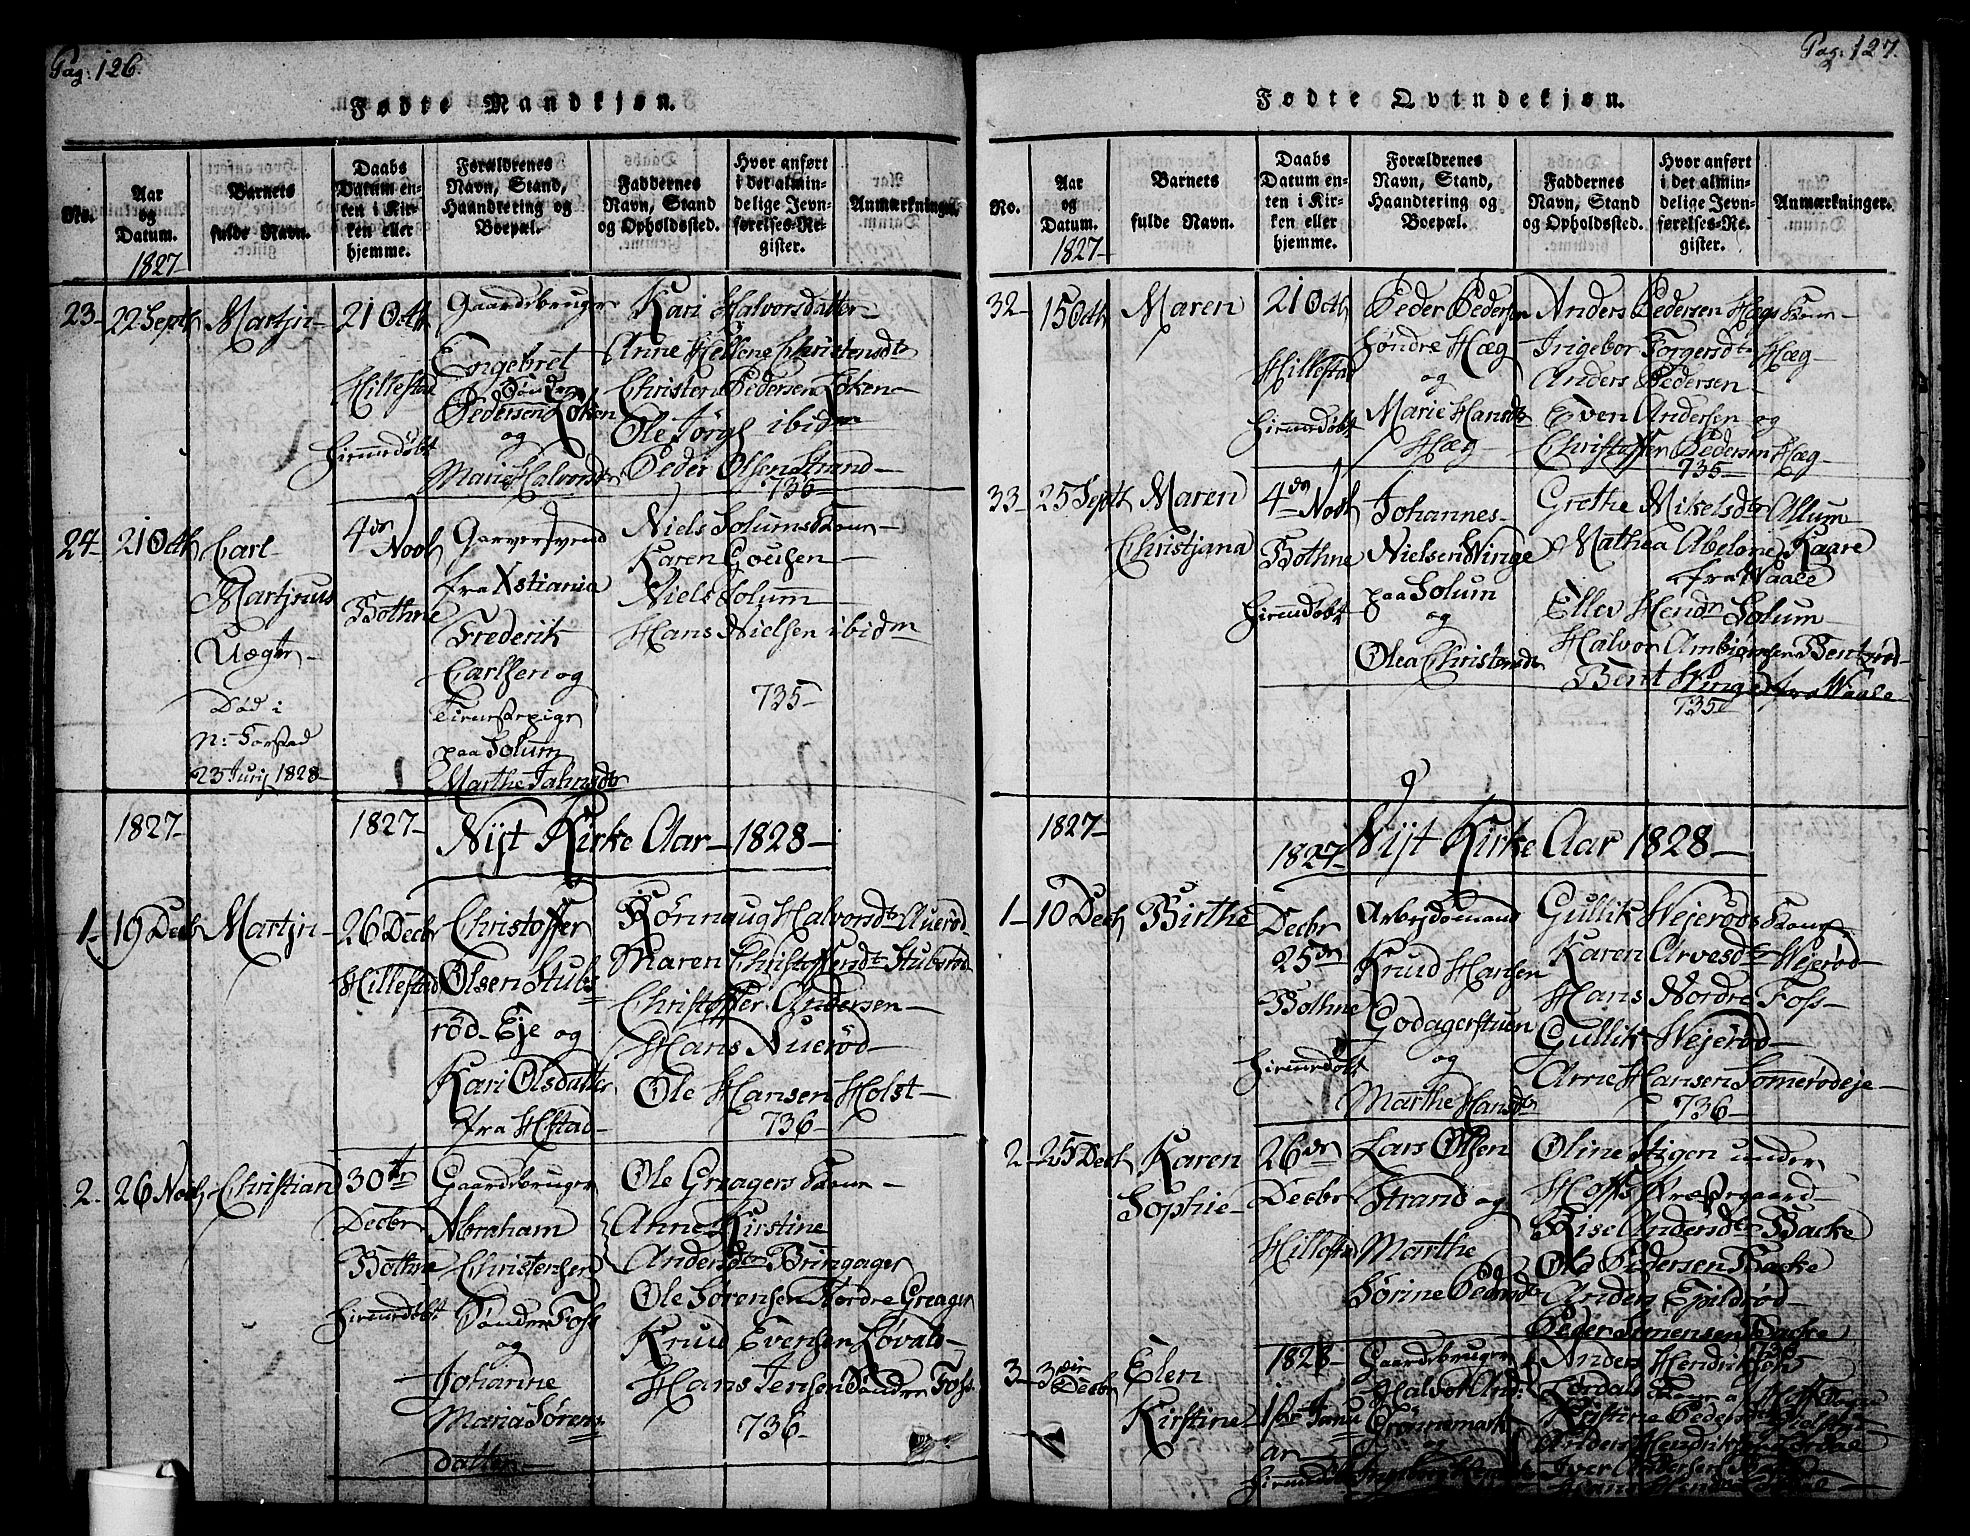 Pag: 126.
Fødte Mandkjøn.
No.
Aar og Datum.
1827
Barnets fulde Navn.
Daabs Datum enten i Kirken eller hjemme.
Forældrenes Navn, Stand, Haandtering og Boepæl.
Faddernes Navn, Stand og Opholdssted.
Hvor anført i det almindelige Jevnførelses-Register.
Anmærkninger.
23-
22 Septb
Martin-
21 Octb
Hillestad
hiemmedøbt
Gaardsbruger
Engebret
Pedersen Løken
og
Marie Halvorsdtr
Kari Halvorsdatter-
Anne Hellene Christensdtr
Christen Pedersen Løken-
Ole Jørgs ibidm
Peder Olsen Strand-
735-
24-
21 Octb
Carl
Martinus
Død i
N: Torstad
1828-
4de Novb
Bothne
Garversvend
fra Xstiania
Frederik
Carlsen og
paa Solum
Marthe
Niels Solums Kone-
Karen
Niels Solum-
Hans Nielsen ibidm
735-
1827-
1827-
Nyt Kirke Aar-1828-
1-
19 Decb
Martin-
26 Decbr
Hillestad
Christoffer
Olsen Stubs=
rød-Eje og
Kari Olsdatter
fra
Halvorsdtr
Maren Christoffersdtr Stubsrød
Christoffer Andersen-
Hans
Ole Hansen Holst-
736-
2.
26 Novb
Christian
30te
Decbr
Bothne
hiemmedøbt
Gaardsbruger
Abraham
Christensen
Søndre Foss
og
Johanne
Maria Sørens=
datter-
Ole Greagers Kone-
Anne Kirstine
Andersdtr Bringager
Ole Sørensen Nordre Greager
Knud Evensen Løvals-
Hans Jensen Søndre Foss.
736-
Pag: 127.
Fødte Qvindekjøn.
No.
Aar og Datum.
1827-
Barnets fulde Navn.
Daabs Datum enten i Kirken eller hjemme.
Forældrenes Navn, Stand, Haandtering og Boepæl.
Faddernes Navn, Stand og Opholdssted.
Hvor anført i det almindelige Jevnførelses-Register.
Anmærkninger.
32-
15 Octb
Maren
21 Octb
Hillestad
hiemmedøbt
Peder Pedersen
Søndre Hæg
og
Marie Hansdtr
Hæg-
Anders Pedersen Hægs Kone-
Ingebor Torgersdtr Hæg-
Anders Pedersen-
Even Andersen og
Christoffer Pedersen Hæg-
735-
33-
25 Septb
Maren
Christiana
4de Novb
Bothne
hiemmedøbt
Johannes-
Nielsen Winge
paa Solum
og
Olea Christensdtr
Grethe Mikelsdtr Allum-
Mathea Abelone Kaare
fra Waale
Ellev Hendn Solum
Halvor Ambiørnsen Bentsrød-
Bent Winge fra Waale-
735-
1827-
1827-
Nyt Kirke Aar 1828-
1-
10 Decb
Birthe
Decbr
25de
Bothne
hiemmedøbt
Arbeidsmand
Knud Hansen
Godagerstuen
og
Marthe Hansdtr
Gullik Wejerøds Kone-
Karen Arvesdtr Wejerød-
Hans Nordre Foss-
Gullik Wejerød-
Arne Hansen Somerødeje-
736-
2-
25 Decb
Karen
Sophie-
26de
Decbr
Hillestad
Lars Olsen
Strand og
Marthe
Sørine Pedersdtr
Oline Stigen under
Hoffs Præstegaard-
Lise Andersdtr Backe
Ole Pedersen Backe
Anders Epildrød-
Peder Simensen Backe
736-
3-
3die
Decbr
Elen
Kirstine
1828-
1ste Janu
ar
Gaardsbruger
Halvor And:
Grønnemark
og
Anders Hendriksens
Kirstine Pedersdtr
Anders Hendriksen
Iver Andersen